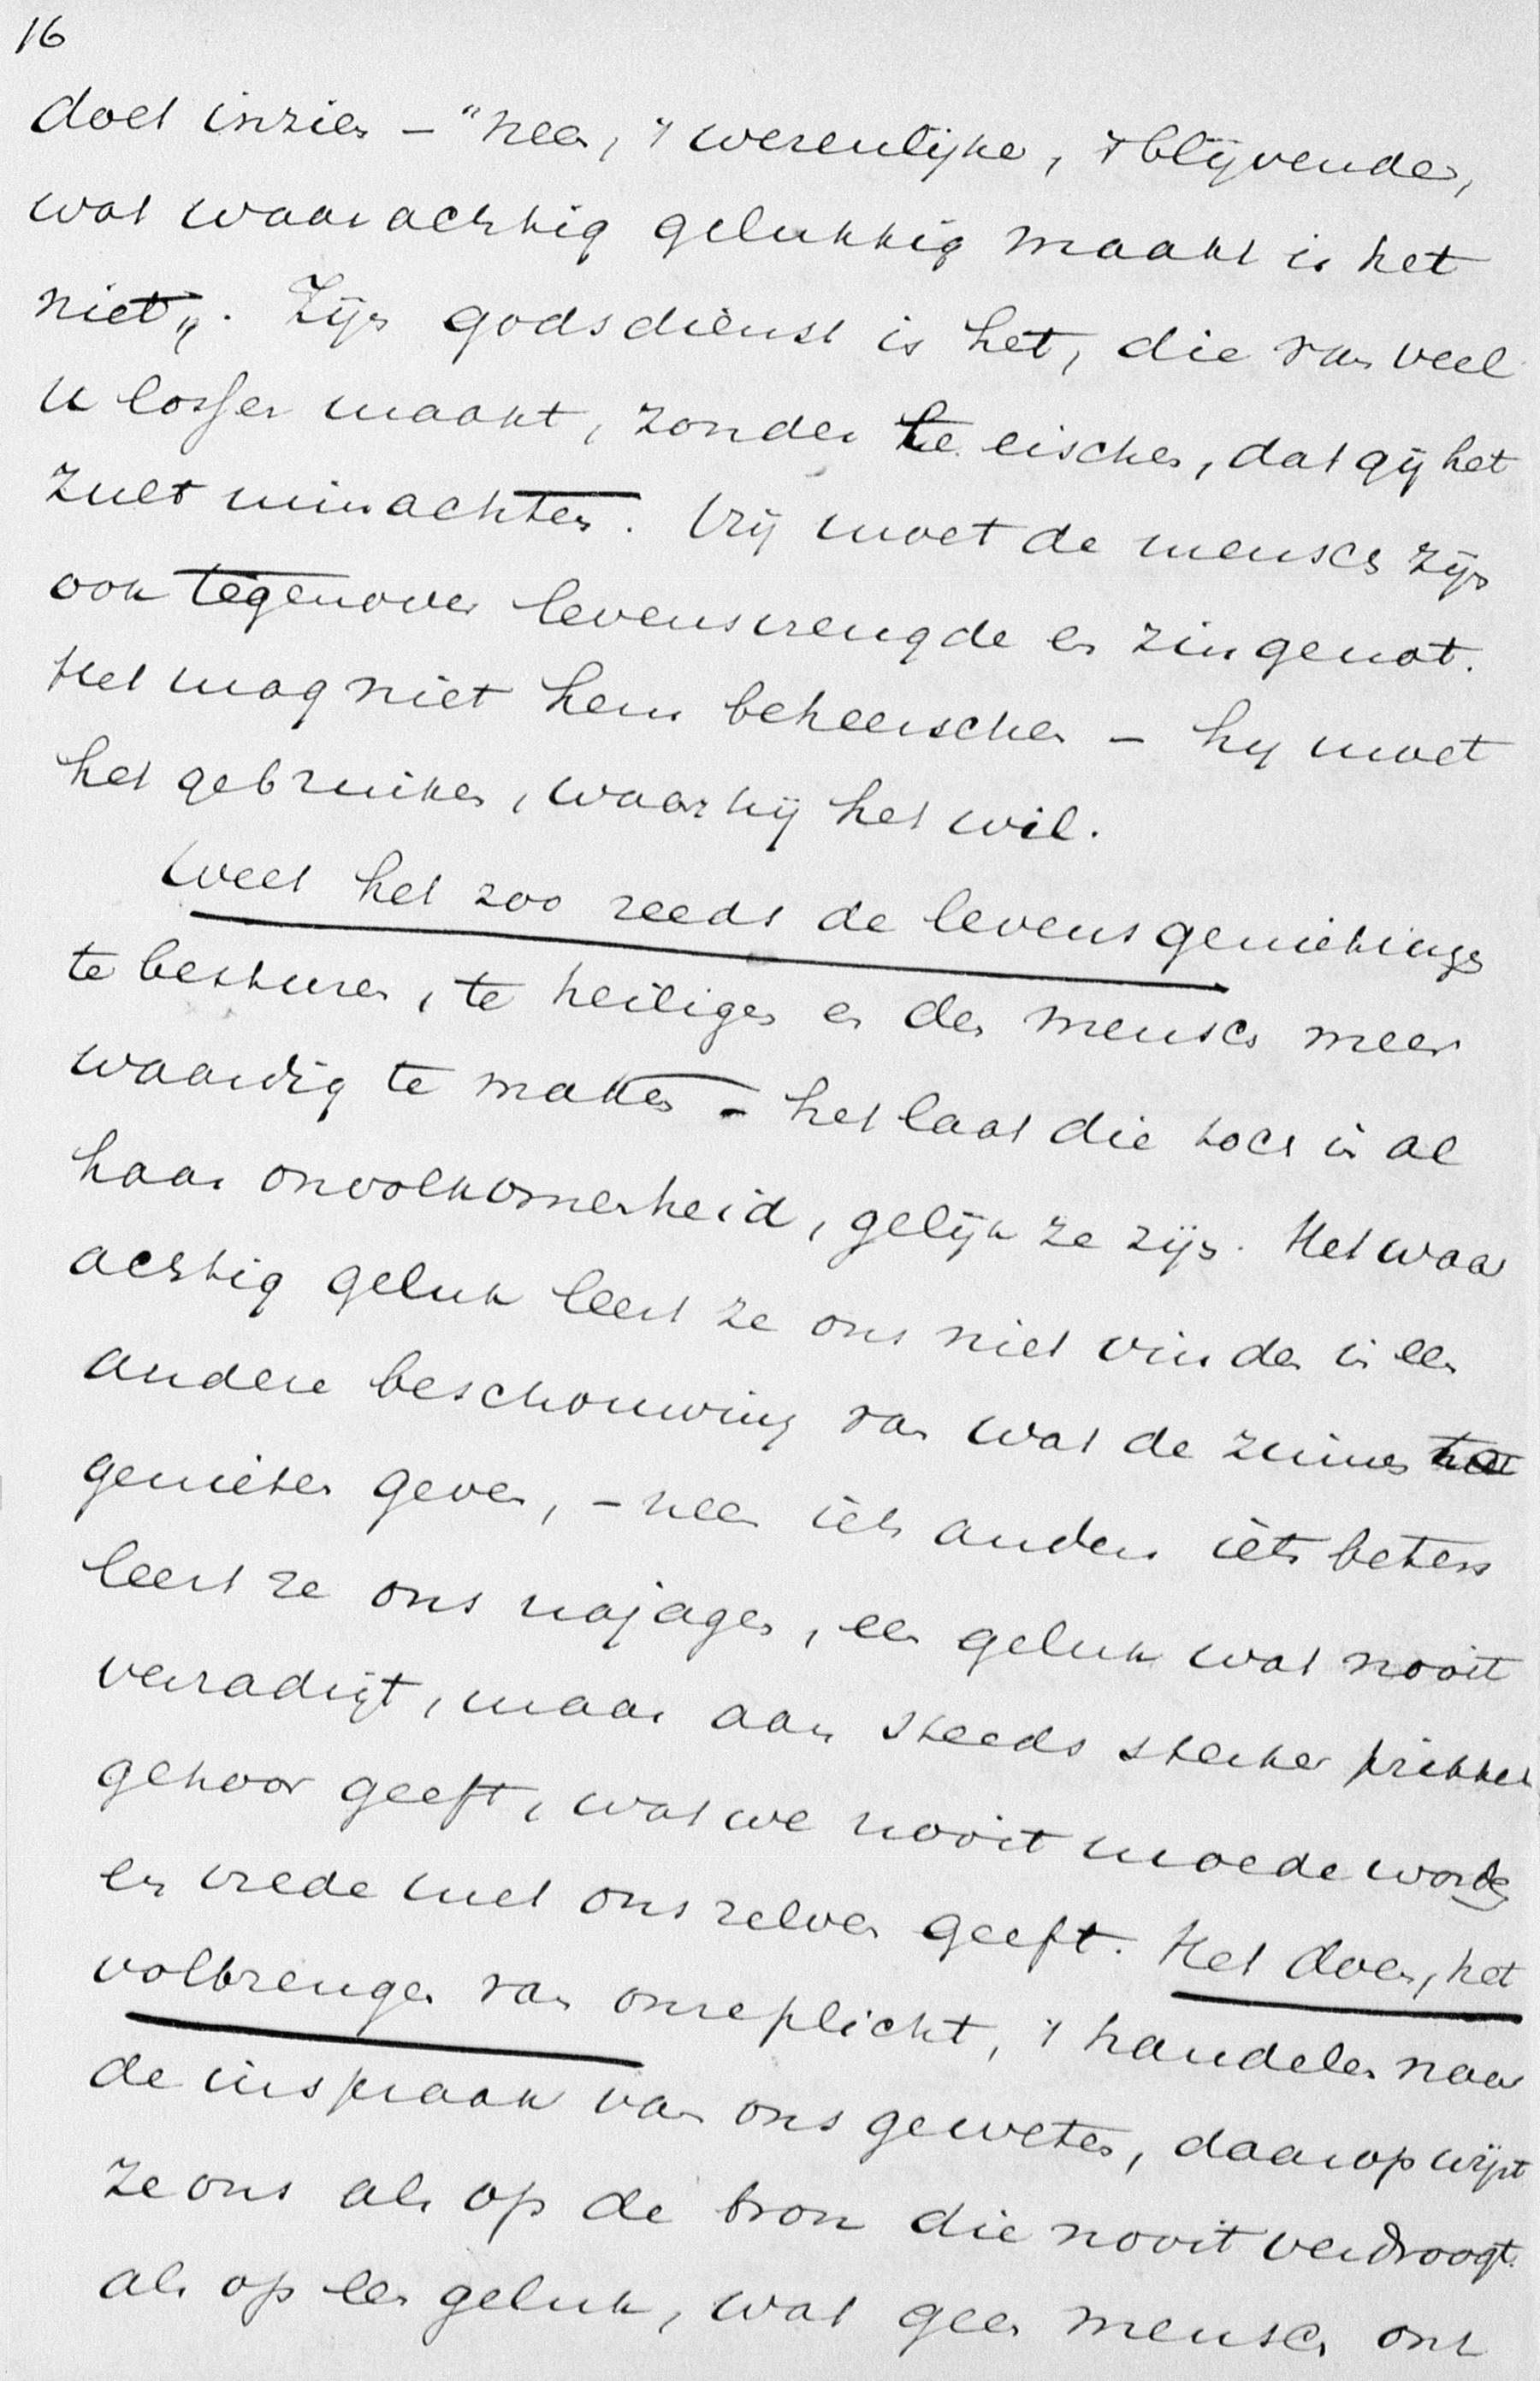 16
doet inzien – "neen, 't wezenlijke, 't blijvende,
wat waarachtig gelukkig maakt is het
niet". Zijn godsdienst is het, die van veel
u losser maakt, zonder te eischen, dat gij het
zult minachten. Vrij moet de mensch zijn
ook tegenover levensvreugde en zingenot.
Het mag niet hem beheerschen – hij moet
het gebruiken, waar hij het wil.
Weet het zoo reeds de levensgenietingen
te besturen, te heiligen en den mensch meer
waardig te maken – het laat die toch in al
haar onvolkomenheid, gelijk ze zijn. Het waar
achtig geluk leert ze ons niet vinden in een
andere beschouwing van wat de zinnen
genieten geven, – neen iets anders iets beters
leert ze ons najagen, een geluk wat nooit
verzadigt, maar aan steeds sterker prikkel
gehoor geeft, wat we nooit moede worden
en vrede met ons zelven geeft. Het doen, het
volbrengen van onze plicht, 't handelen naar
de inspraak van ons geweten, daarop wijst
ze ons als op de bron die nooit verdroogt.
als op een geluk, wat geen mensch ons